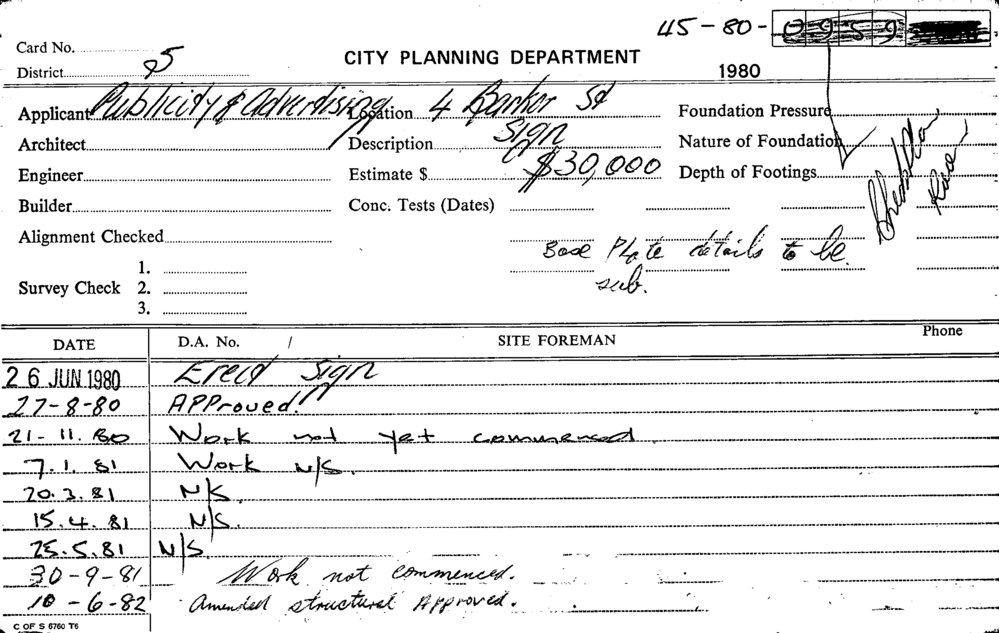 45-80-0959
Card No.
CITY PLANNING DEPARTMENT
District 5
1980
Applicant Publicity & Advertising Location 4 Barker St Foundation Pressure
Architect Description Sign Nature of Foundation
Engineer Estimate $ $30,000 Depth of Footings
Builder Conc. Tests (Dates)
Alignment Checked
Base Plate details to be
sub.
1.
Survey Check 2.
3.
DATE D.A. No. / SITE FOREMAN Phone
26 JUN 1980 Erect Sign
27-8-80 Approved.
21-11.80 Work not yet commenced.
7.1.81 Work N/S.
20.3.81 N/S.
15.4.81 N/S.
25.5.81 N/S.
30-9-81 Work not commenced.
10-6-82 Amended structural Approved.
C OF S 6760 T6